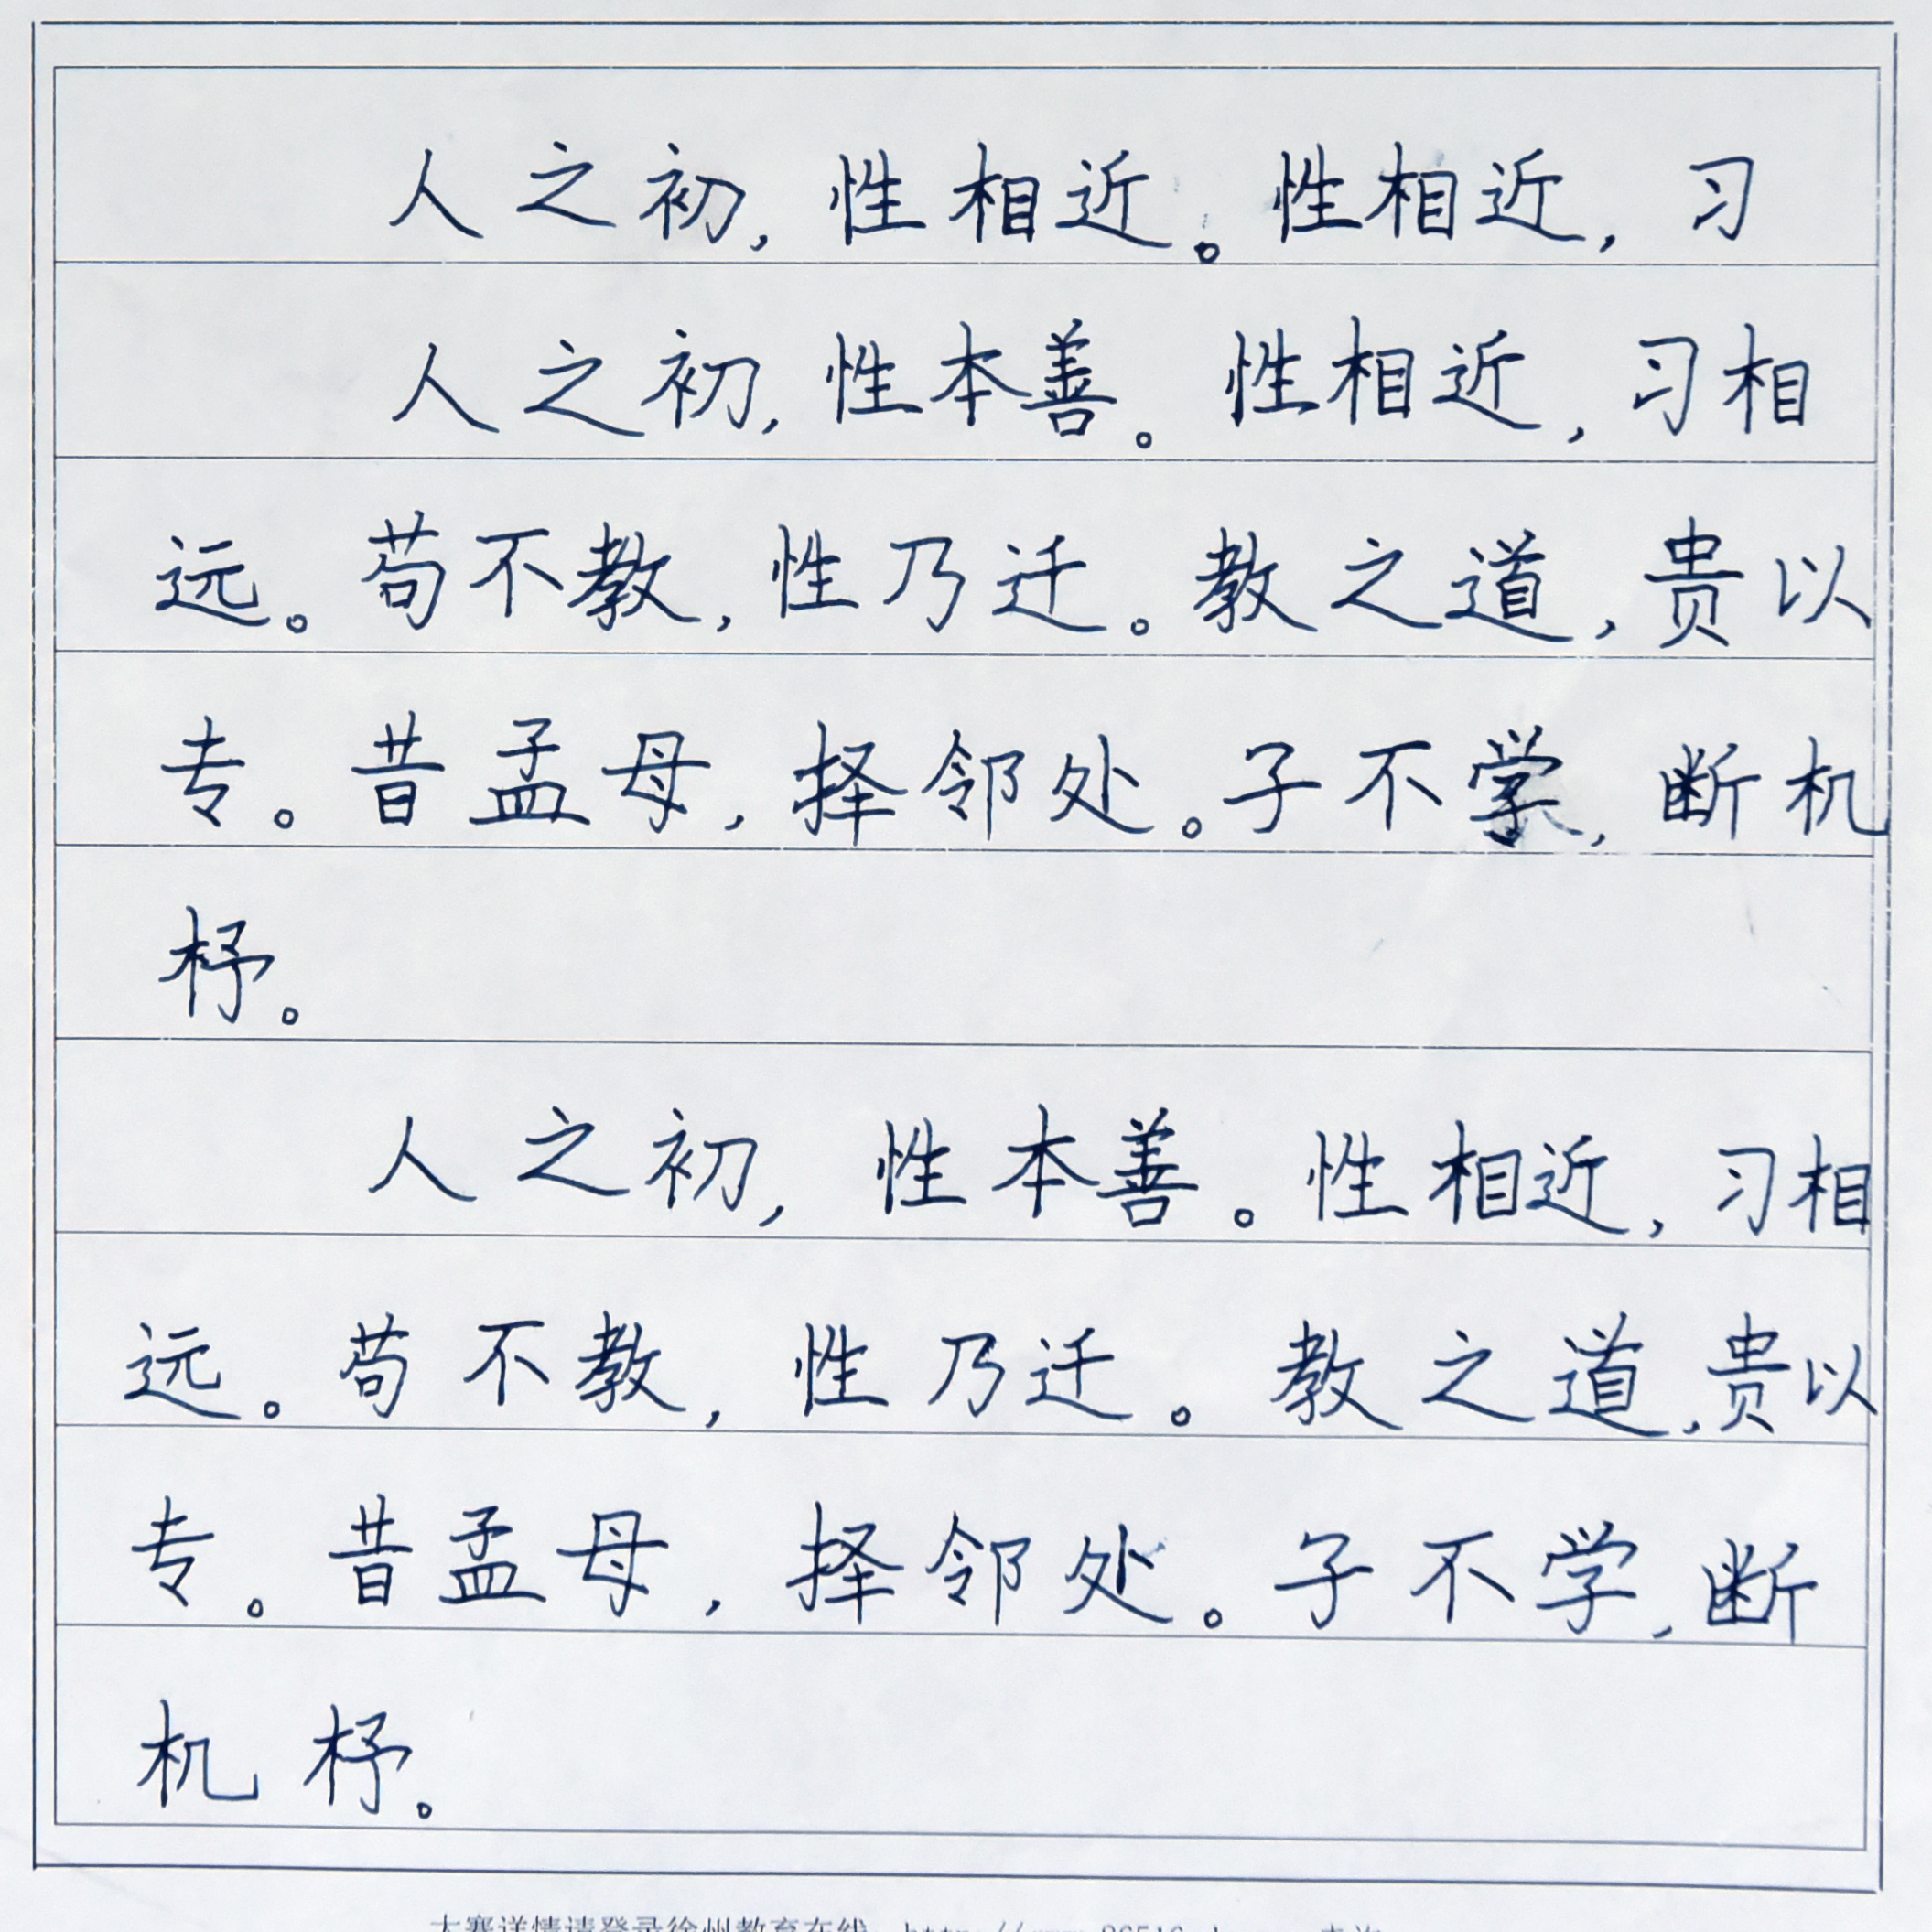 人之初,性相近。性相近,习
人之初,性本善。性相近,习相
远。苟不教,性乃迁。教之道,贵以
专。昔孟母,择邻处。子不学,断机
杼。
人之初,性本善。性相近,习相
远。苟不教,性乃迁。教之道,贵以
专。昔孟母,择邻处。子不学,断
机杼。
大赛详情请登录徐州教育在线